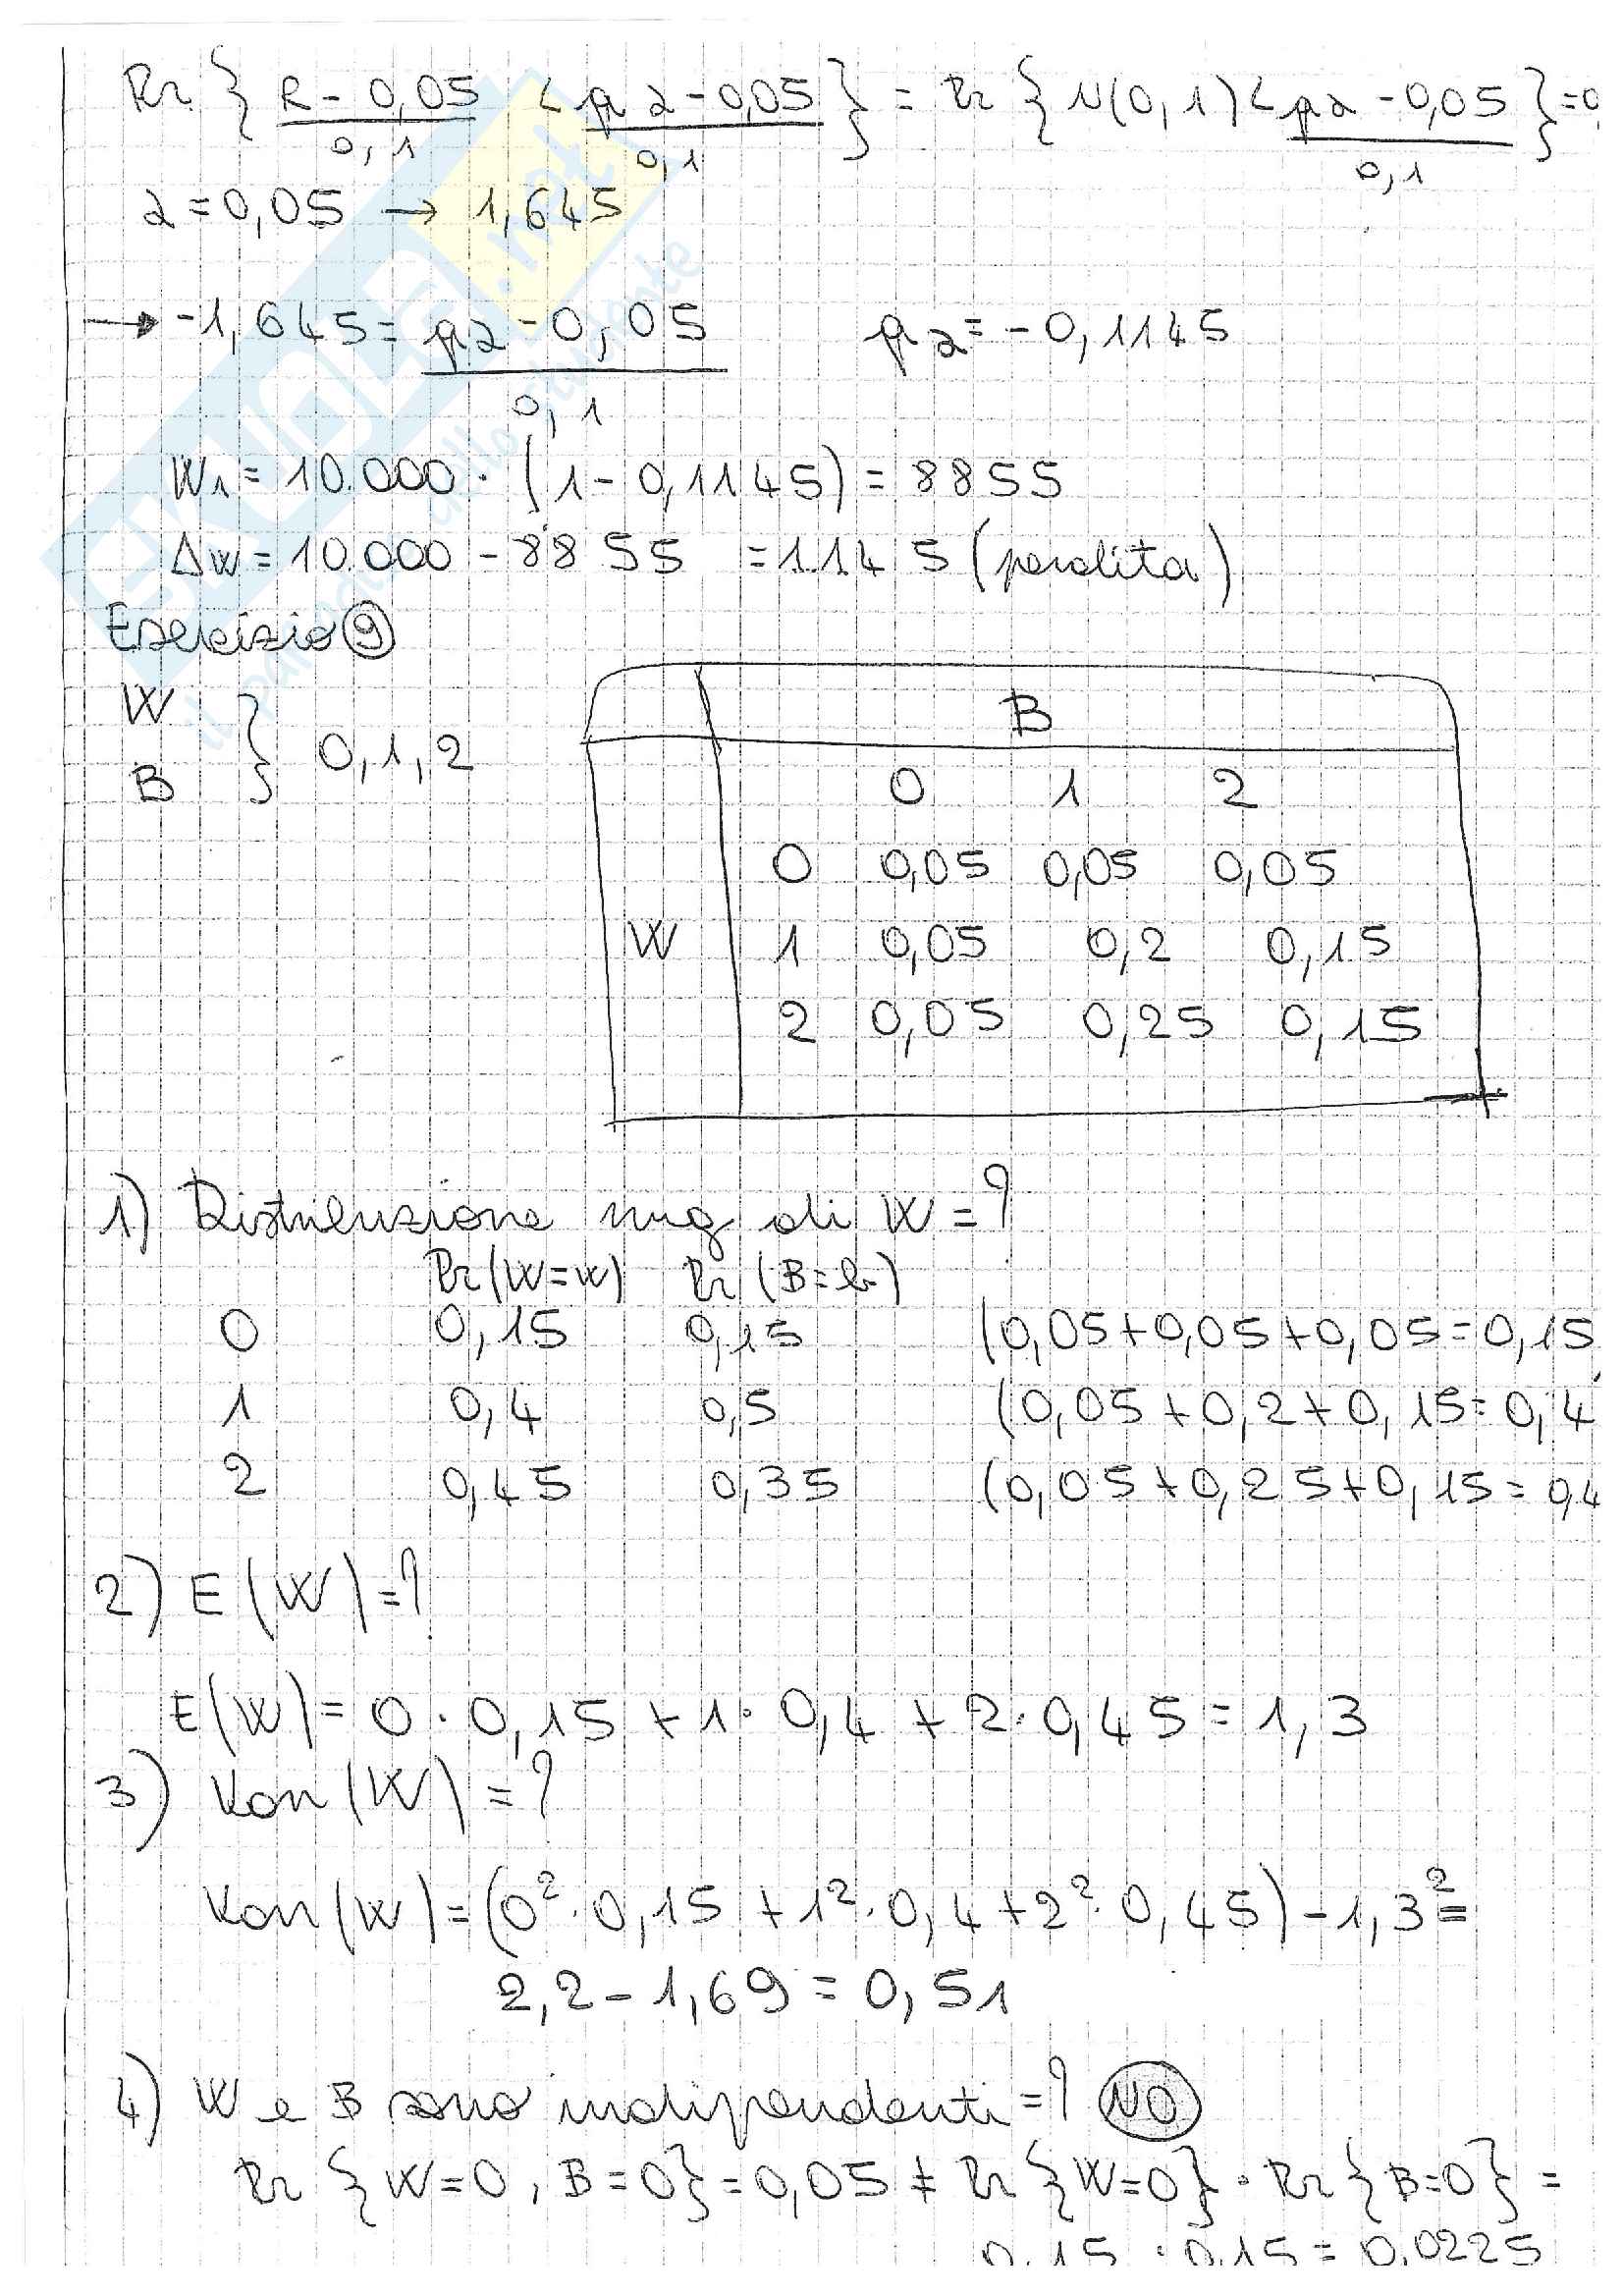 Pr { R - 0,05 / 0,1 < pα - 0,05 / 0,1 } = Pr { N(0,1) < pα - 0,05 / 0,1 } = 0,
α = 0,05 → 1,645
→ -1,645 = pα - 0,05 / 0,1    pα = -0,1145
W1 = 10.000 · (1 - 0,1145) = 8855
Δw = 10.000 - 8855 = 1145 (perdita)
Esercizio 9
W
B } 0,1,2
B
0 1 2
0 0,05 0,05 0,05
W 1 0,05 0,2 0,15
2 0,05 0,25 0,15
1) Distribuzione mrg di W = ?
Pr (W=w) Pr (B=b)
0 0,15 0,15 (0,05+0,05+0,05=0,15
1 0,4 0,5 (0,05+0,2+0,15=0,4
2 0,45 0,35 (0,05+0,25+0,15=0,4
2) E (W) = ?
E(W) = 0 · 0,15 + 1 · 0,4 + 2 · 0,45 = 1,3
3) Var (W) = ?
Var (W) = (0² · 0,15 + 1² · 0,4 + 2² · 0,45) - 1,3² =
2,2 - 1,69 = 0,51
4) W e B sono indipendenti = ? NO
Pr {W=0, B=0} = 0,05 ≠ Pr {W=0} · Pr {B=0} =
0,15 · 0,15 = 0,0225